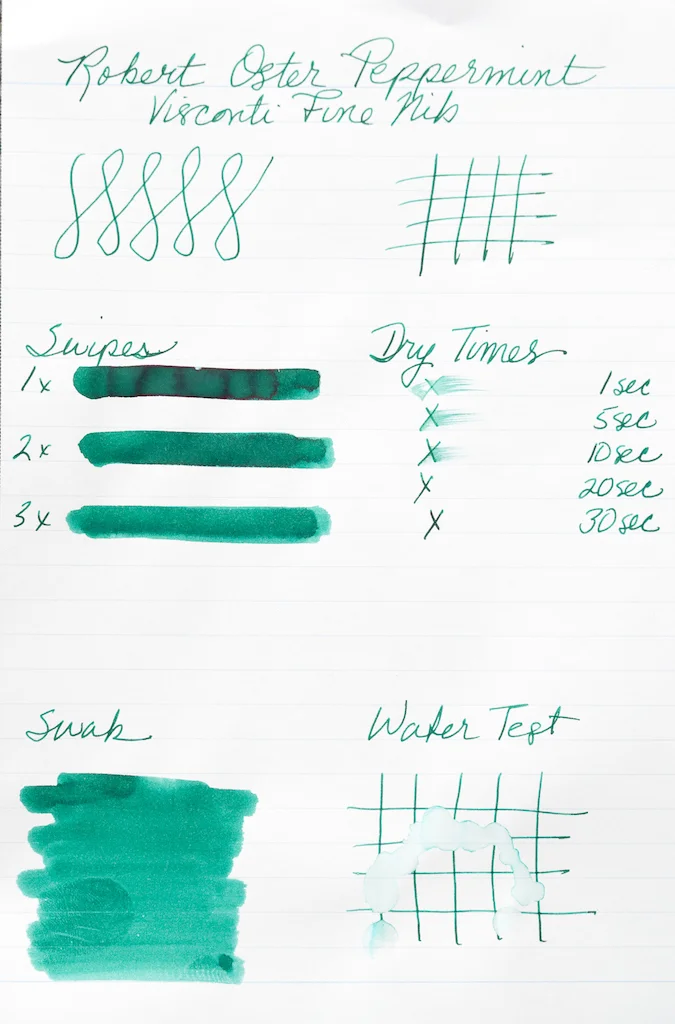 Robert Oster Peppermint
Visconti Fine Nib
Swipes
1x
2x
3x
Dry Times
x 1sec
x 5sec
x 10sec
x 20sec
x 30sec
Swab
Water Test